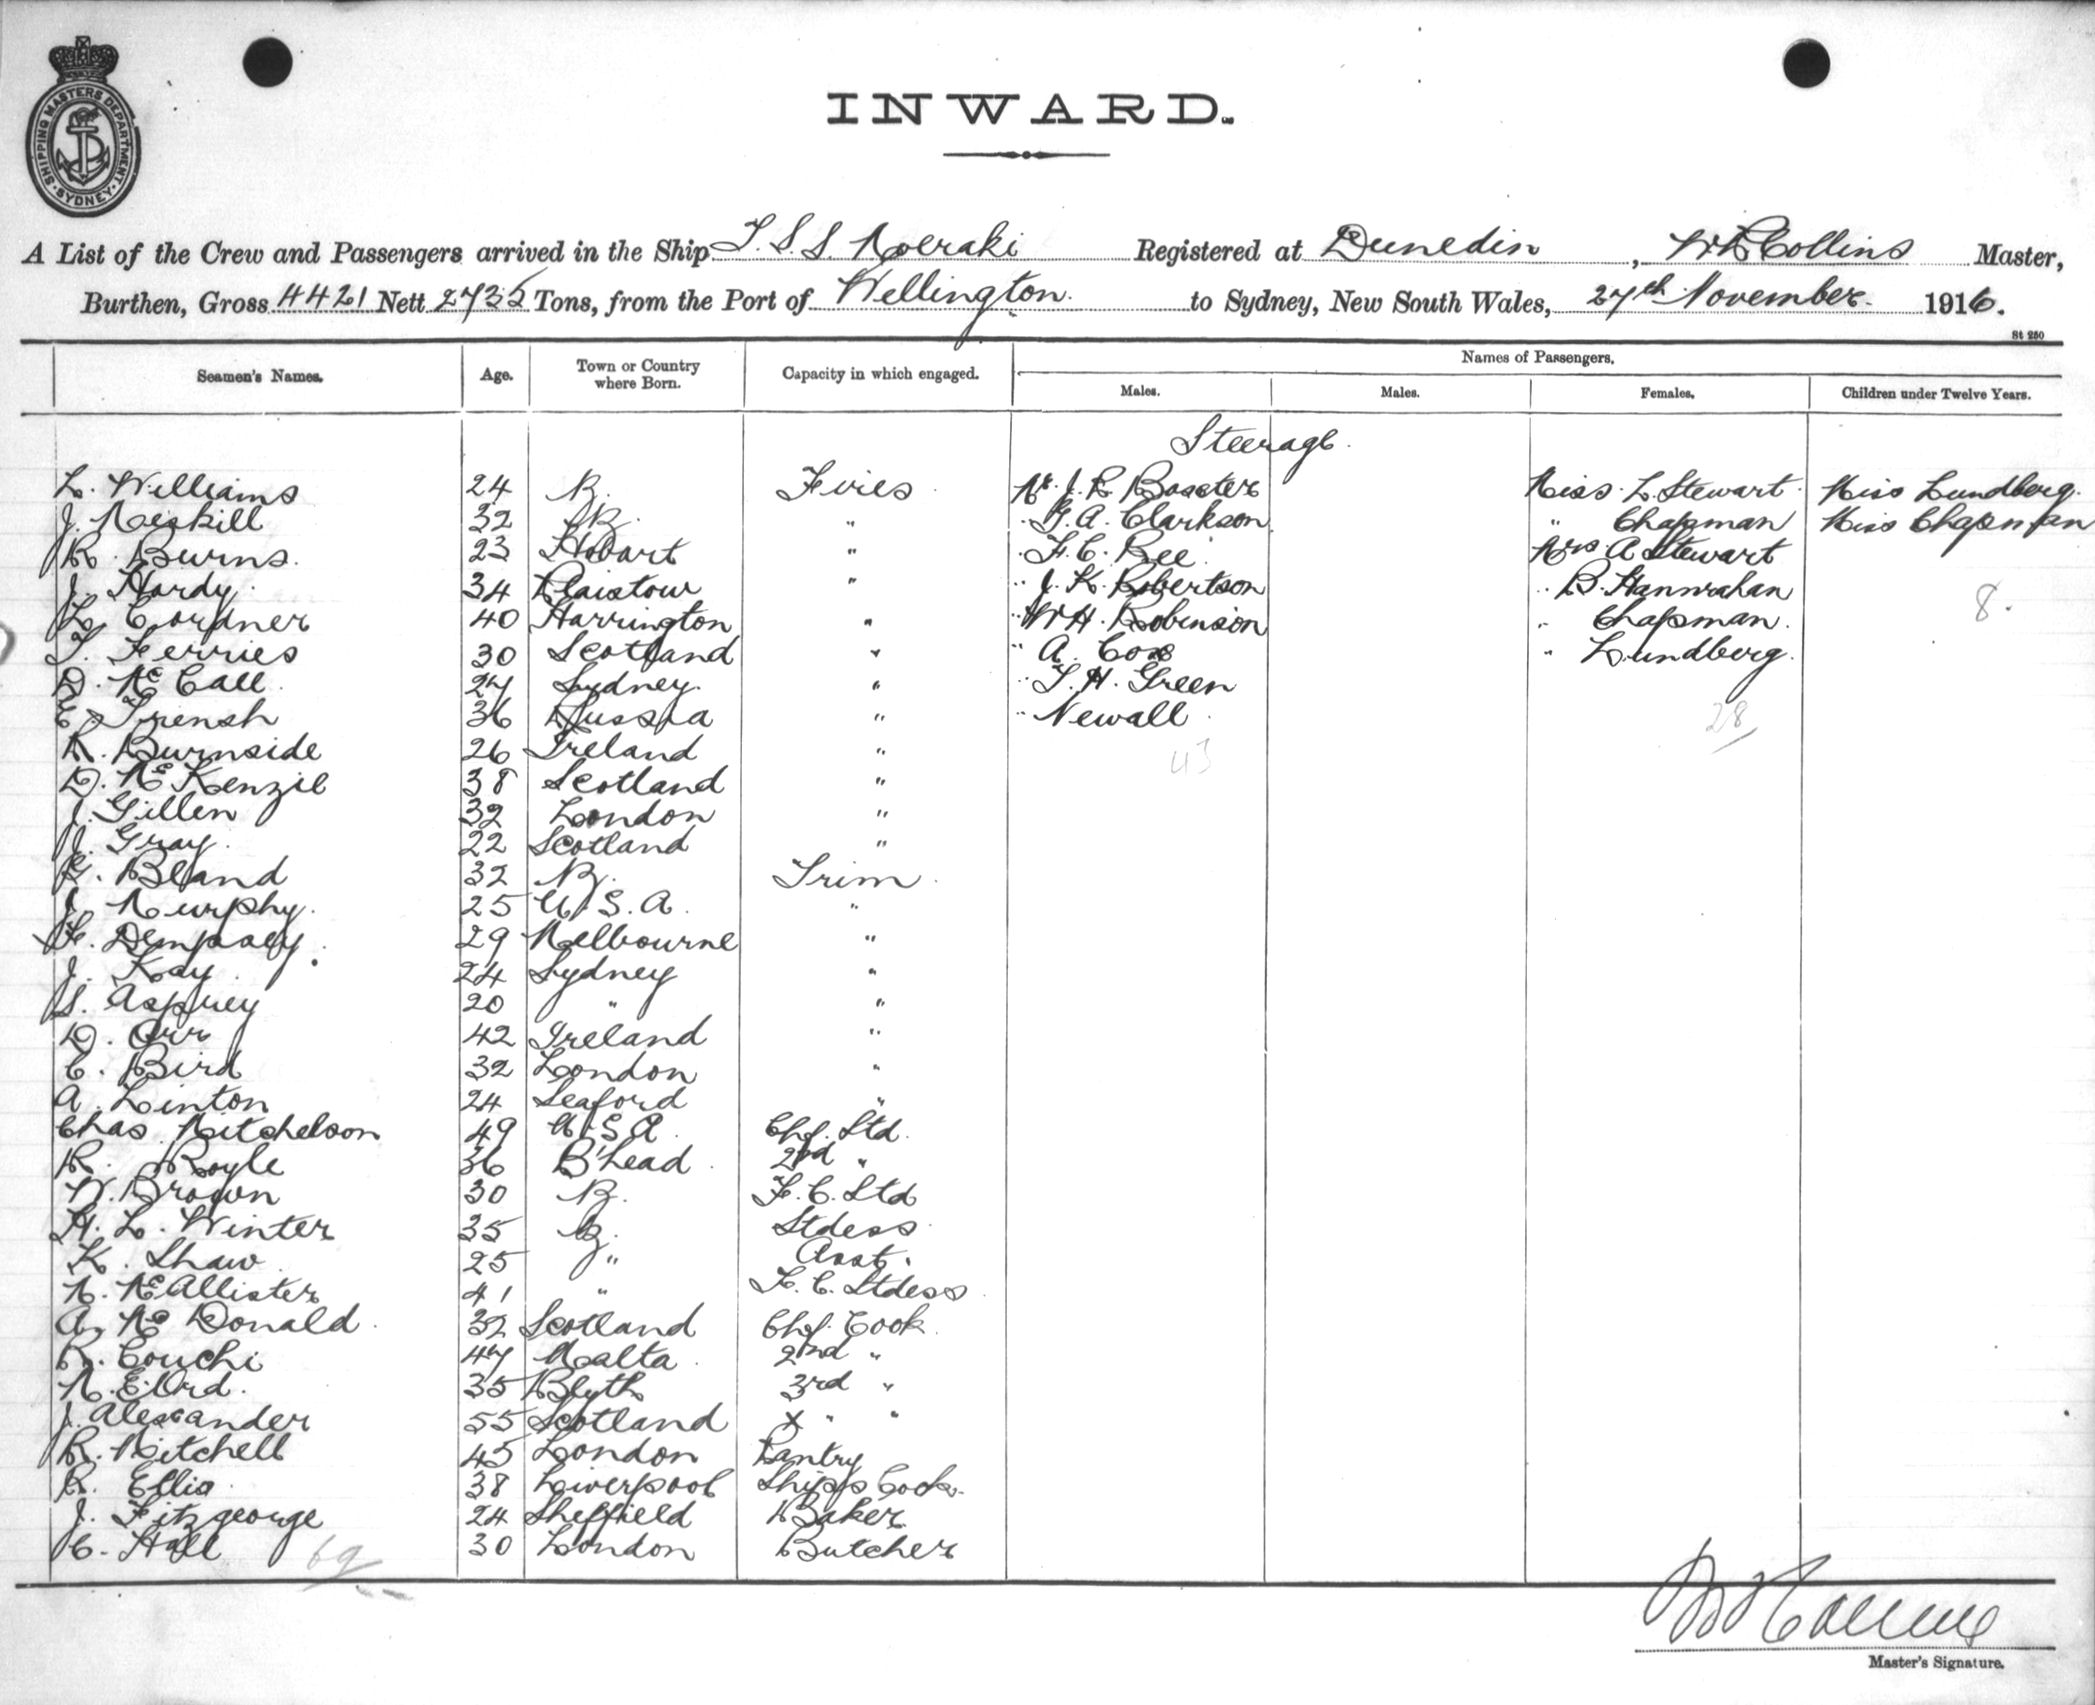 SHIPPING MASTERS DEPARTMENT · SYDNEY ·
INWARD.
A List of the Crew and Passengers arrived in the Ship T.S.S. Moeraki Registered at Dunedin, W R Collins Master,
Burthen, Gross 4421 Nett 2735 Tons, from the Port of Wellington. to Sydney, New South Wales, 27th November 1916.
St 250
Seamen's Names. Age. Town or Country where Born. Capacity in which engaged. Names of Passengers.
Males. Males. Females. Children under Twelve Years.
Steerage.
L. Williams 24 Fires Mr. J. R. Baxter Miss L. Stewart Miss Lundberg.
J. Meskill 32 " " G. A. Clarkson " Chapman Miss Chapman
R. Burns. 23 Hobart " " F. C. Bee Mrs A Stewart
J. Hardy. 34 Plaistow " " J. K. Robertson " B. Hannrahan
L. Cordner 40 Harrington " " W H. Robinson " Chapman. 8.
T. Ferries 30 Scotland " " A. Cox " Lundberg.
D. McCall. 27 Sydney. " " T. H. Green
E. Trensh 36 Russia " " Newall. 28
R. Burnside 26 Ireland " 43
D. McKenzie 38 Scotland "
J. Gillen 32 London "
J. Gray. 22 Scotland "
G. Bland 32 Trim.
J. Murphy. 25 U.S.A. "
F. Dempsey. 29 Melbourne "
J. Kay. 24 Sydney "
S. Asprey 20 " "
D. Orr 42 Ireland "
C. Bird 32 London "
A. Linton 24 Seaford "
Chas Mitchelson 49 U.S.A. Chf. Std.
R. Royle 36 B'head. 2nd "
W. Brown 30 F. C. Std
H. L. Winter 35 Stdess.
K. Shaw 25 " Asst.
M. McAllister 41 " F. C. Stdess.
A. McDonald 32 Scotland Chf. Cook.
R. Couchi 47 Malta. 2nd "
M. Ellrd. 35 Blyth 3rd "
J. Alexander 55 Scotland x " "
R. Mitchell 45 London Pantry
R. Ellis 38 Liverpool Ships Cook.
J. Fitzgeorge 24 Sheffield Baker
C. Hall 30 London Butcher
69
W R Collins
Master's Signature.